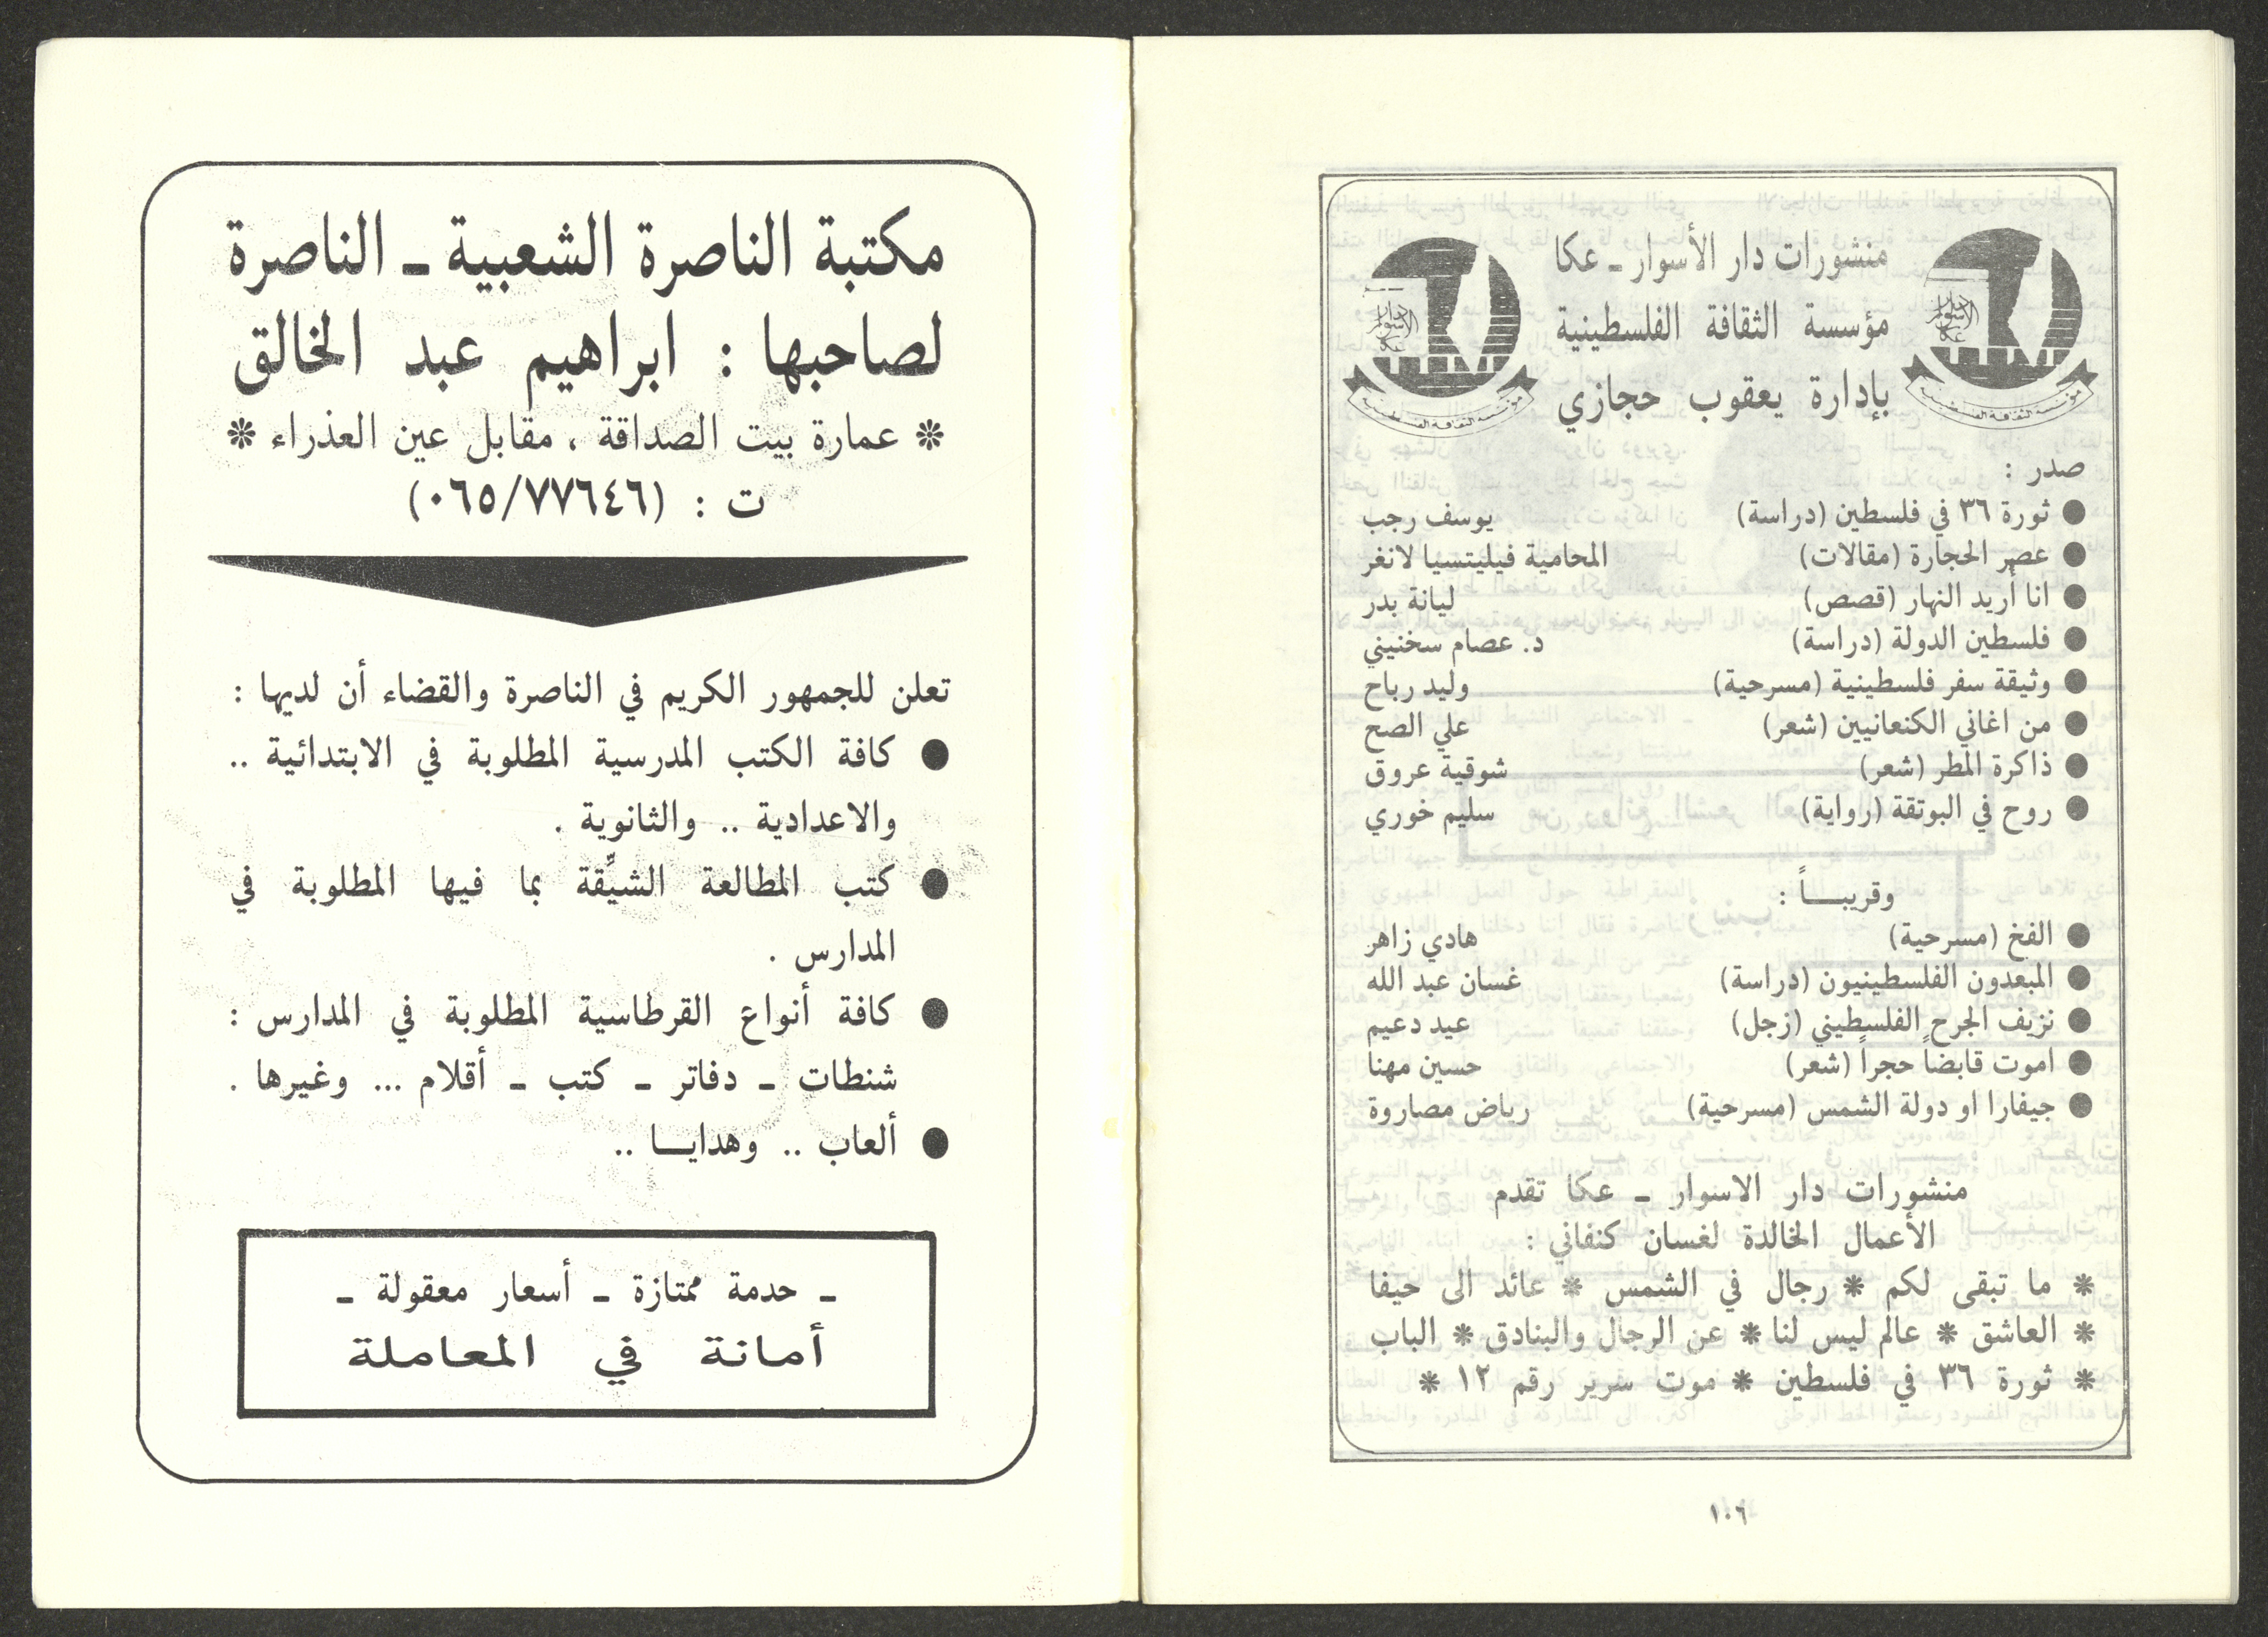 منشورات دار الأسوار ـ عكا
مؤسسة الثقافة الفلسطينية
بإدارة يعقوب حجازي
دار الأسوار عكا
مؤسسة الثقافة الفلسطينية
دار الأسوار عكا
مؤسسة الثقافة الفلسطينية
صدر :
● ثورة ٣٦ في فلسطين (دراسة) يوسف رجب
● عصر الحجارة (مقالات) المحامية فيليتسيا لانغر
● انا أريد النهار (قصص) ليانة بدر
● فلسطين الدولة (دراسة) د. عصام سخنيني
● وثيقة سفر فلسطينية (مسرحية) وليد رباح
● من اغاني الكنعانيين (شعر) علي الصح
● ذاكرة المطر (شعر) شوقية عروق
● روح في البوتقة (رواية) سليم خوري
وقريبـــاً :
● الفخ (مسرحية) هادي زاهر
● المبعدون الفلسطينيون (دراسة) غسان عبد الله
● نزيف الجرح الفلسطيني (زجل) عيد دعيم
● اموت قابضاً حجراً (شعر) حسين مهنا
● جيفارا او دولة الشمس (مسرحية) رياض مصاروة
منشورات دار الاسوار ـ عكا تقدم
الأعمال الخالدة لغسان كنفاني :
* ما تبقى لكم * رجال في الشمس * عائد الى حيفا
* العاشق * عالم ليس لنا * عن الرجال والبنادق * الباب
* ثورة ٣٦ في فلسطين * موت سرير رقم ١٢ *
١٠٦
مكتبة الناصرة الشعبية ـ الناصرة
لصاحبها : ابراهيم عبد الخالق
* عمارة بيت الصداقة ، مقابل عين العذراء *
ت : (٠٦٥/٧٧٦٤٦)
تعلن للجمهور الكريم في الناصرة والقضاء أن لديها :
● كافة الكتب المدرسية المطلوبة في الابتدائية ..
والاعدادية .. والثانوية .
● كتب المطالعة الشيّقة بما فيها المطلوبة في
المدارس .
● كافة أنواع القرطاسية المطلوبة في المدارس :
شنطات ـ دفاتر ـ كتب ـ أقلام ... وغيرها .
● ألعاب .. وهدايـــا ..
ـ خدمة ممتازة ـ أسعار معقولة ـ
أمانة في المعاملة